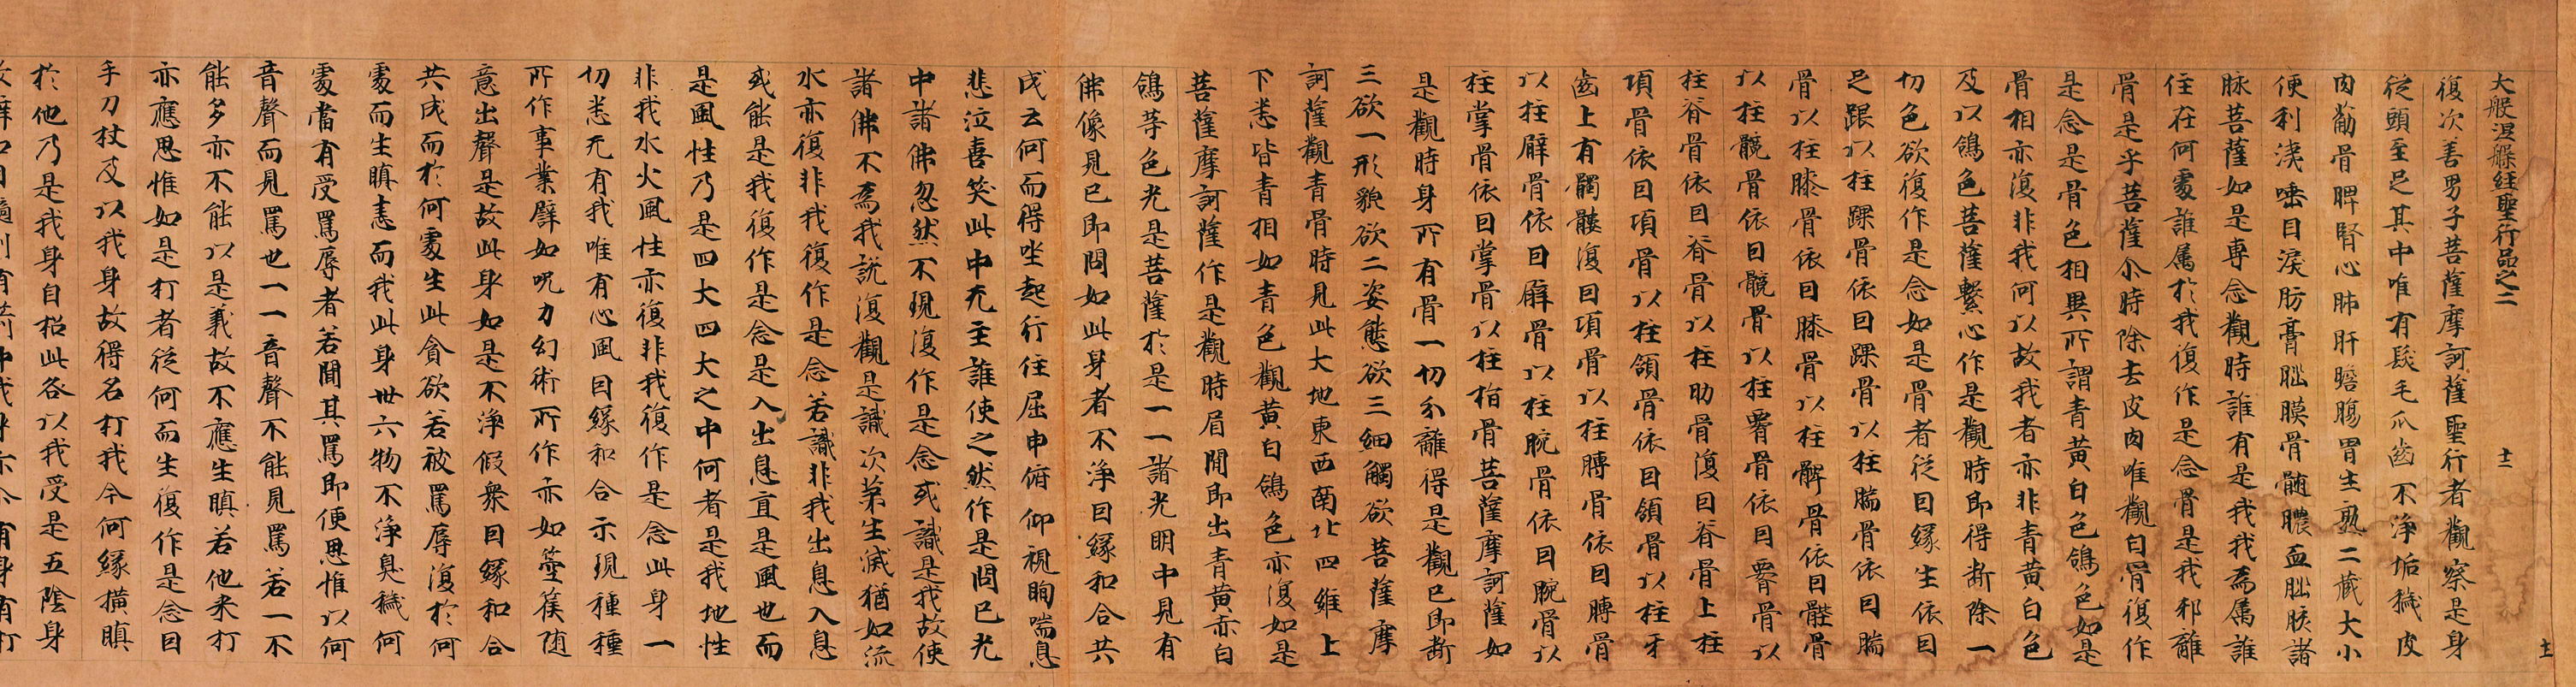 大般涅槃經聖行品之二　十二
復次善男子菩薩摩訶薩聖行者觀察是身
從頭至足其中唯有髮毛爪齒不淨垢穢皮
肉筋骨脾腎心肺肝膽腸胃生熟二藏大小
便利洟唾目淚肪膏腦膜骨髓膿血腦胲諸
脉菩薩如是專念觀時誰有是我我為屬誰
住在何處誰屬於我復作是念骨是我耶離
骨是乎菩薩尒時除去皮肉唯觀白骨復作
是念是骨色相異所謂青黃白色鴿色如是
骨相亦復非我何以故我者亦非青黃白色
及以鴿色菩薩繫心作是觀時即得斷除一
切色欲復作是念如是骨者從因緣生依因
足跟以柱踝骨依因踝骨以柱腨骨依因腨
骨以柱膝骨依因膝骨以柱髀骨依因髀骨
以柱髖骨依因髖骨以柱𦝫骨依因𦝫骨以
柱脊骨依因脊骨以柱肋骨復因脊骨上柱
項骨依因項骨以柱頷骨依因頷骨以柱牙
齒上有髑髏復因項骨以柱膊骨依因膊骨
以柱臂骨依因臂骨以柱腕骨依因腕骨以
柱掌骨依因掌骨以柱指骨菩薩摩訶薩如
是觀時身所有骨一切分離得是觀已即斷
三欲一形貌欲二姿態欲三細觸欲菩薩摩
訶薩觀青骨時見此大地東西南北四維上
下悉皆青相如青色觀黃白鴿色亦復如是
菩薩摩訶薩作是觀時眉間即出青黃赤白
鴿等色光是菩薩於是一一諸光明中見有
佛像見已即問如此身者不淨因緣和合共
成云何而得坐起行住屈申俯仰視眴喘息
悲泣喜笑此中无主誰使之然作是問已光
中諸佛忽然不現復作是念或識是我故使
諸佛不為我說復觀是識次第生滅猶如流
水亦復非我復作是念若識非我出息入息
或能是我復作是念是入出息直是風也而
是風性乃是四大四大之中何者是我地性
非我水火風性亦復非我復作是念此身一
切悉无有我唯有心風因緣和合示現種種
所作事業譬如呪力幻術所作亦如箜篌随
意出聲是故此身如是不淨假衆因緣和合
共成而於何處生此貪欲若被罵辱復於何
處而生瞋恚而我此身卅六物不淨臭穢何
處當有受罵辱者若聞其罵即便思惟以何
音聲而見罵也一一音聲不能見罵若一不
能多亦不能以是義故不應生瞋若他來打
亦應思惟如是打者從何而生復作是念因
手刀杖及以我身故得名打我今何緣橫瞋
於他乃是我身自招此咎以我受是五陰身
十二